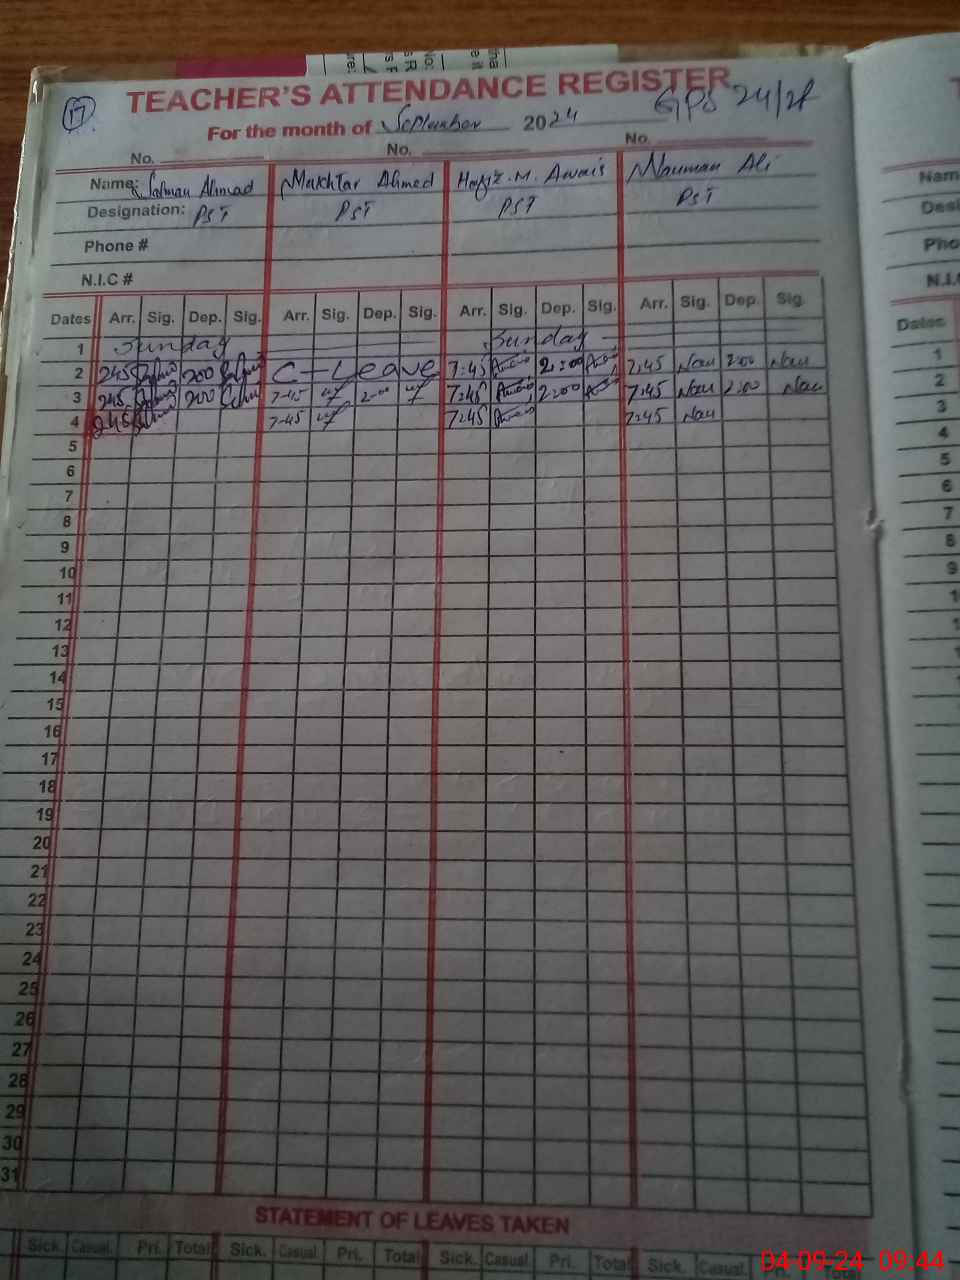 17
TEACHER'S ATTENDANCE REGISTER
GPS 24/2R
For the month of September 2024
No. No. No.
Name: Salman Ahmad Mukhtar Ahmed Hafiz. M. Awais Nouman Ali
Designation: PST PST PST PST
Phone #
N.I.C #
Dates Arr. Sig. Dep. Sig. Arr. Sig. Dep. Sig. Arr. Sig. Dep. Sig. Arr. Sig. Dep. Sig.
1 Sunday Sunday
2 745 200 C-Leave 7:45 2:00 7:45 Nau 2:00 Nau
3 745 200 7-45 2-00 7:45 2:00 7:45 Nau 2:00 Nau
4 745 7-45 7:45 7:45 Nau
5
6
7
8
9
10
11
12
13
14
15
16
17
18
19
20
21
22
23
24
25
26
27
28
29
30
31
STATEMENT OF LEAVES TAKEN
Sick. Casual. Pri. Total Sick. Casual Pri. Total Sick. Casual. Pri. Total Sick. Casual. Pri. Total
04-09-24 09:44
Dates
1
2
3
4
5
6
7
8
9